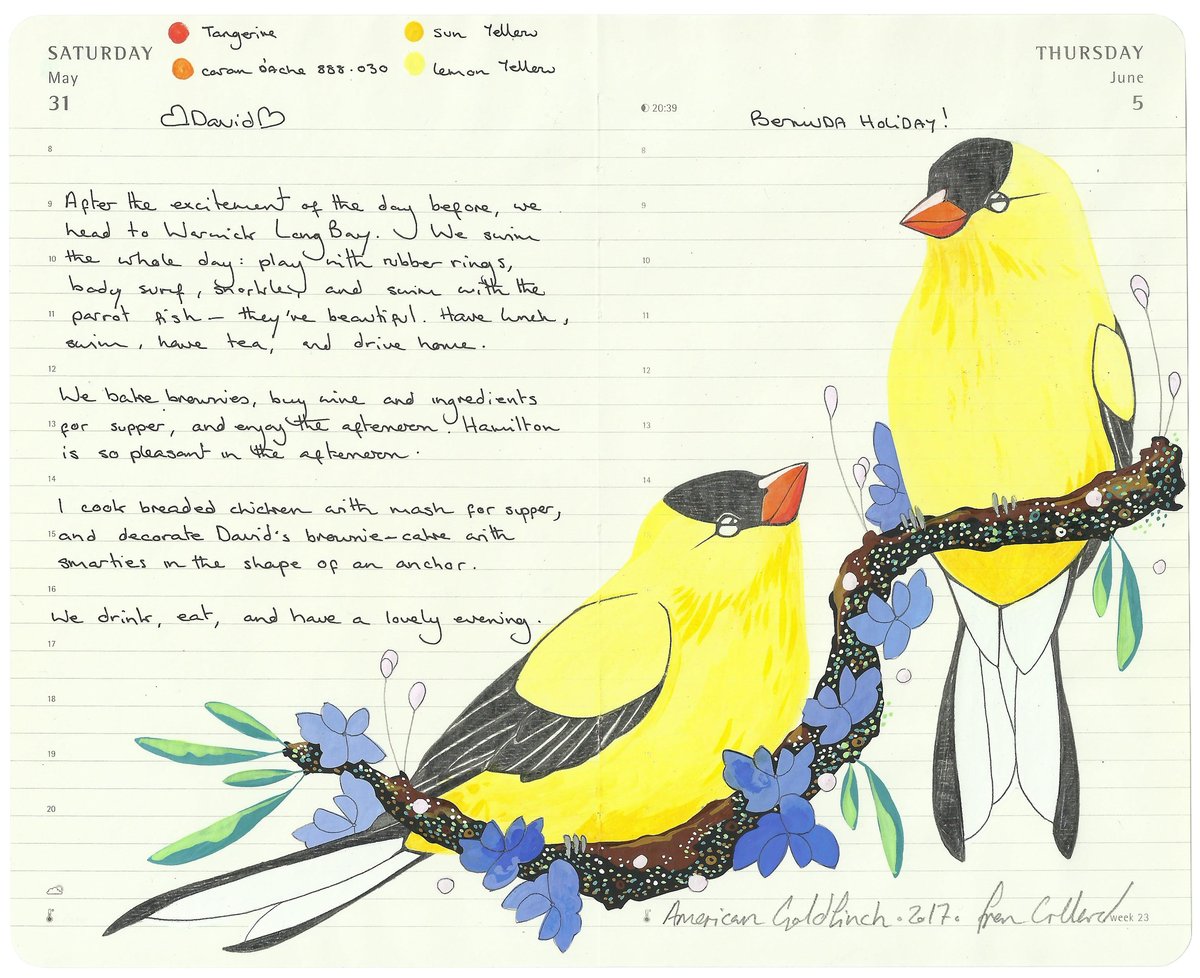 SATURDAY
May
31
Tangerine
caran D'Ache 888.030
Sun Yellow
Lemon Yellow
David
8
9 After the excitement of the day before, we
head to Warwick Long Bay. We swim
10 the whole day: play with rubber rings,
body surf, snorkley and swim with the
11 parrot fish – they've beautiful. Have lunch,
swim, have tea, and drive home.
12
We bake brownies, buy wine and ingredients
13 for supper, and enjoy the afternoon. Hamilton
is so pleasant in the afternoon.
14
I cook breaded chicken with mash for supper,
15 and decorate David's brownie-cake with
smarties in the shape of an anchor.
16
We drink, eat, and have a lovely evening.
17
18
19
20
THURSDAY
June
5
20:39
BERMUDA HOLIDAY!
8
9
10
11
12
13
14
15
American Goldfinch · 2017. Fran Collerd
week 23